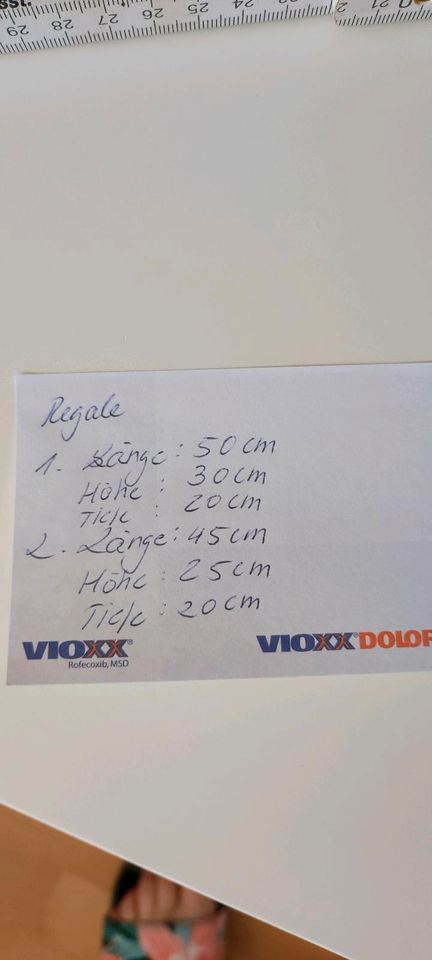 29 28 27 26 25 24 2 21
Regale
1. Länge: 50cm
Höhe: 30cm
Tiefe: 20cm
2. Länge: 45cm
Höhe: 25cm
Tiefe: 20cm
VIOXX® VIOXX® DOLOR
Rofecoxib, MSD